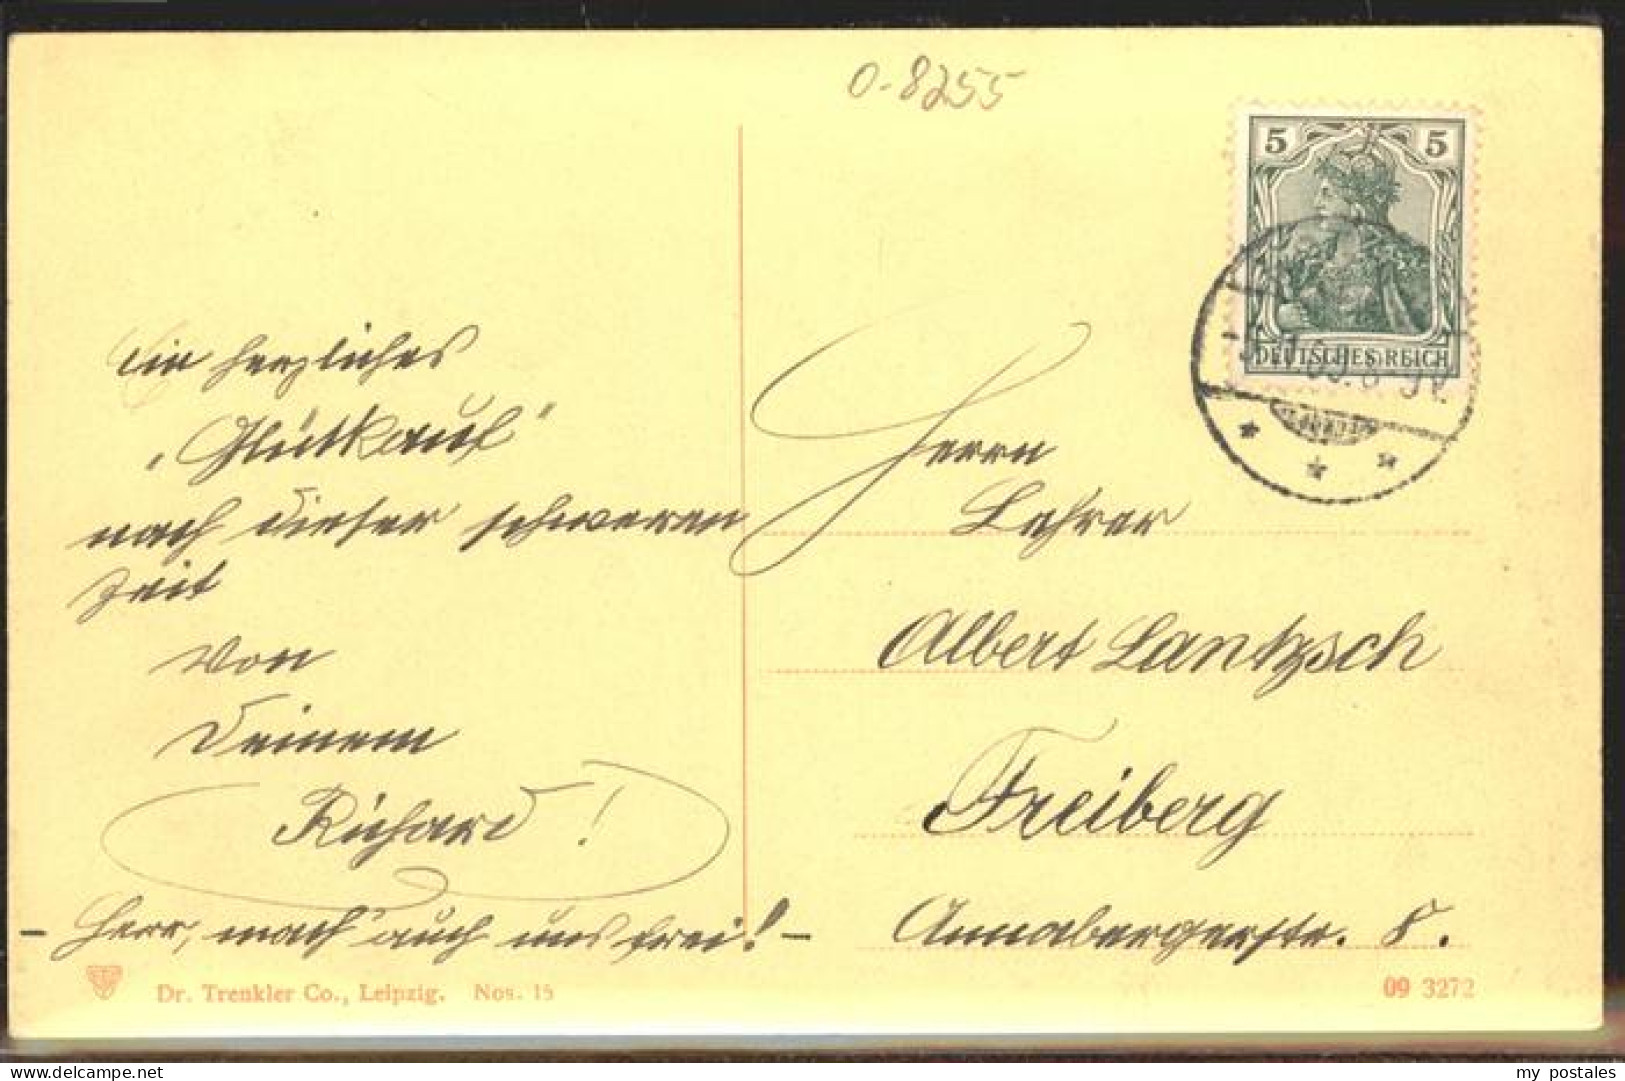 0-8255
5 5
DEUTSCHES REICH
Ein herzliches
„Glückauf“
nach dieser schweren
Zeit
von
Deinem
Richard!
- Herr, mach auch uns frei! -
Herrn
Lehrer
Albert Lantzsch
Freiberg
Annabergerstr. 5.
Dr. Trenkler Co., Leipzig. Nos. 15
09 3272
delcampe.net
my_postales